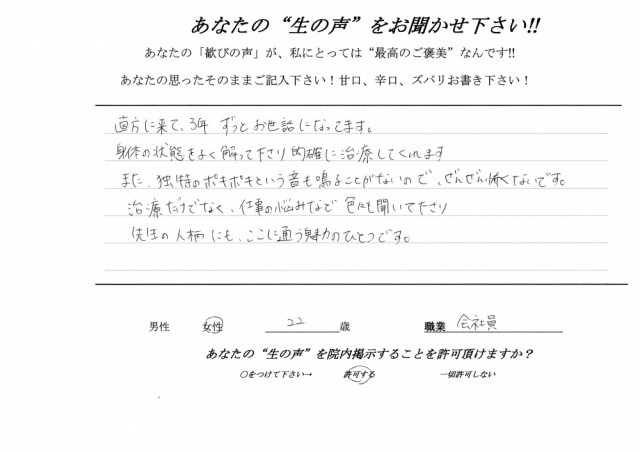 あなたの“生の声”をお聞かせ下さい!!
あなたの「歓びの声」が、私にとっては“最高のご褒美”なんです!!
あなたの思ったそのままご記入下さい！甘口、辛口、ズバリお書き下さい！
直方に来て、3年 ずっとお世話になってます。
身体の状態をよく解って下さり的確に治療してくれます
また、独特のポキポキという音も鳴ることがないので、ぜんぜん怖くないです。
治療だけでなく、仕事の悩みなど 色々聞いて下さり
先生の人柄にも、ここに通う魅力のひとつです。
男性 女性 22 歳 職業 会社員
あなたの“生の声”を院内掲示することを許可頂けますか？
○をつけて下さい→ 許可する 一切許可しない